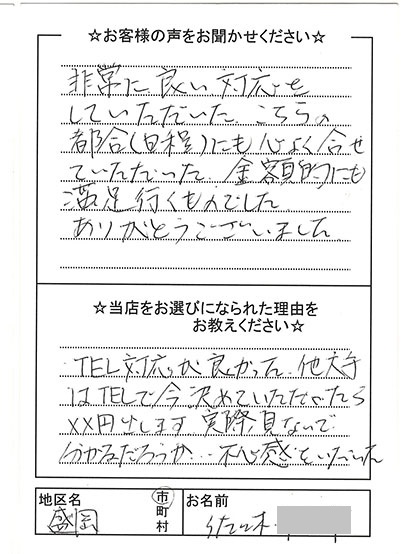 ☆お客様の声をお聞かせください☆
非常に良い対応を
していただいた。こちらの
都合(日程)にも心よく合せ
ていただいた。金額的にも
満足行くものでした
ありがとうございました
☆当店をお選びになられた理由を
お教えください☆
TEL対応が良かった。他大手
はTELで今決めていただいたら
XX円出します 実際見ないで
分かるだろうか‥不心感をいだいた
地区名
盛岡
市
町
村
お名前
佐々木